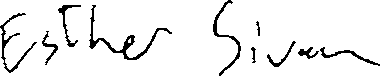 Esther Sivan